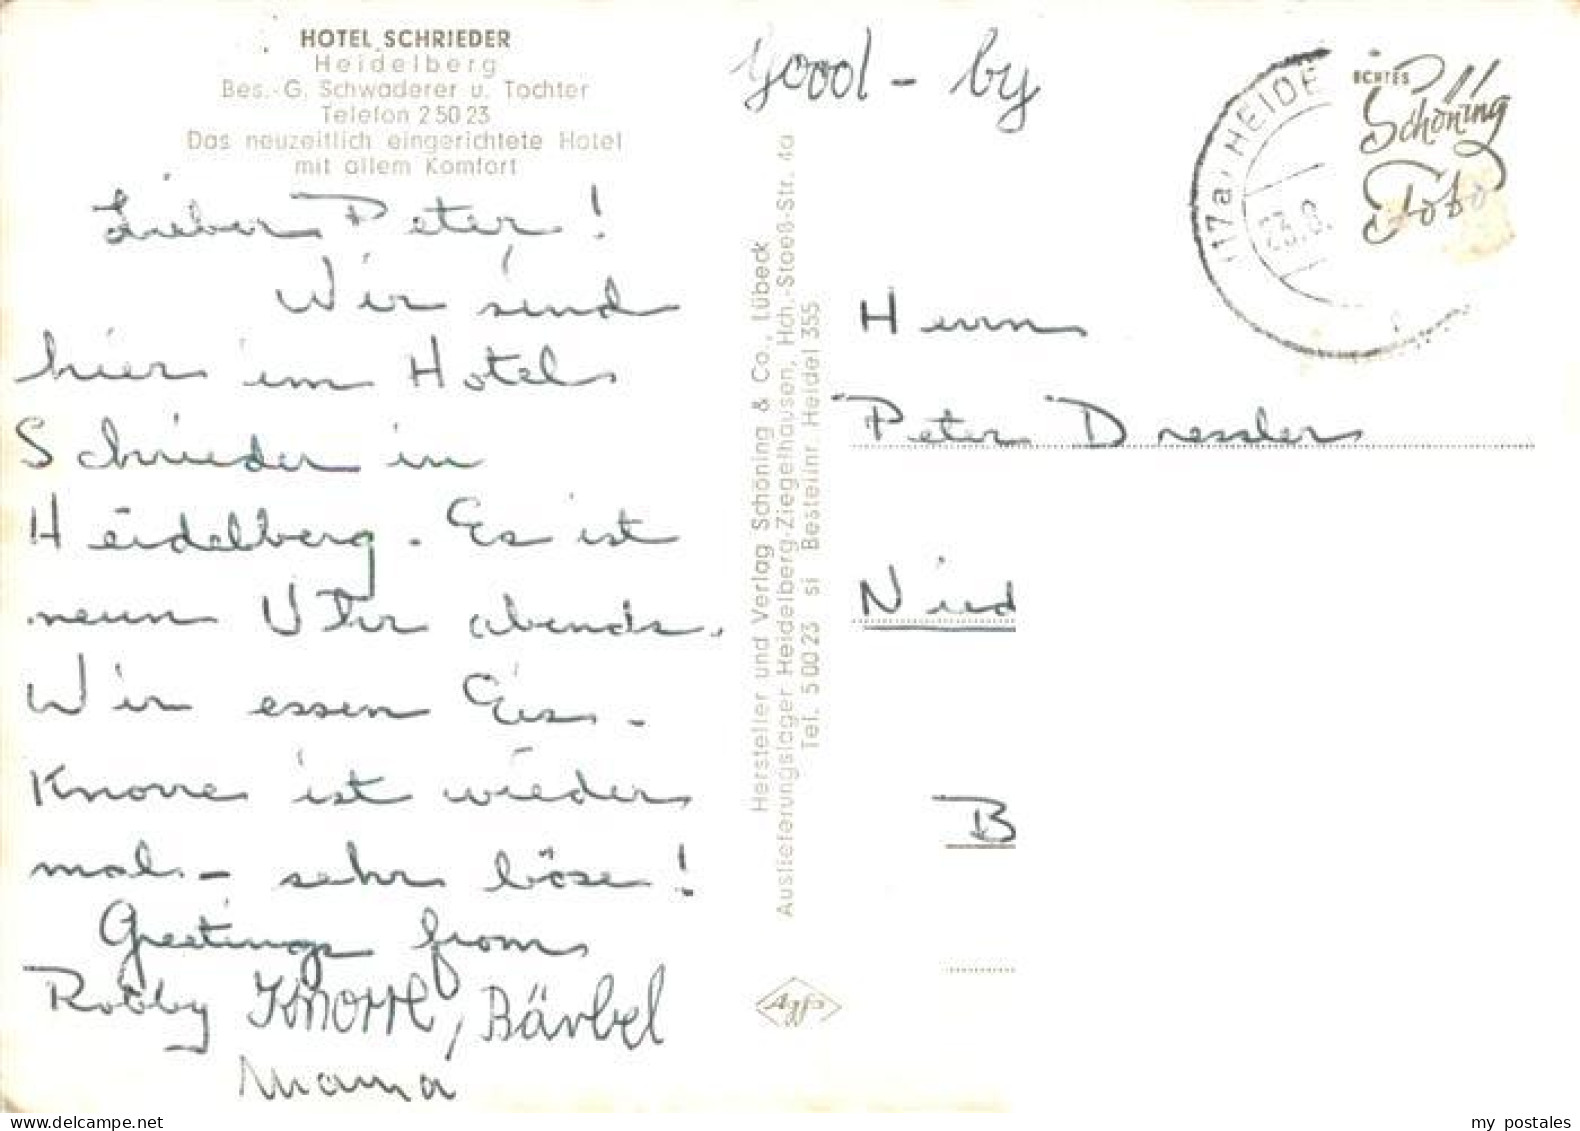 HOTEL SCHRIEDER
Heidelberg
Bes. G. Schwaderer u. Tochter
Telefon 25023
Das neuzeitlich eingerichtete Hotel
mit allem Komfort
Lieber Peter!
Wir sind
hier im Hotel
Schrieder in
Heidelberg. Es ist
neun Uhr abends.
Wir essen Eis.
Knorre ist wieder
mal - sehr böse!
Greetings from
Robby Knorre, Bärbel
Mama
Hersteller und Verlag Schöning & Co., Lübeck
Auslieferungslager Heidelberg-Ziegelhausen, Hch.-Stoeß-Str. 4a
Tel. 50023 si Bestellnr. Heidel 355
Agfa
Good - by
(17a) HEIDE
23.
ECHTES
Schöning
Foto
Herrn
Peter Dressler
Nied
B
my postales